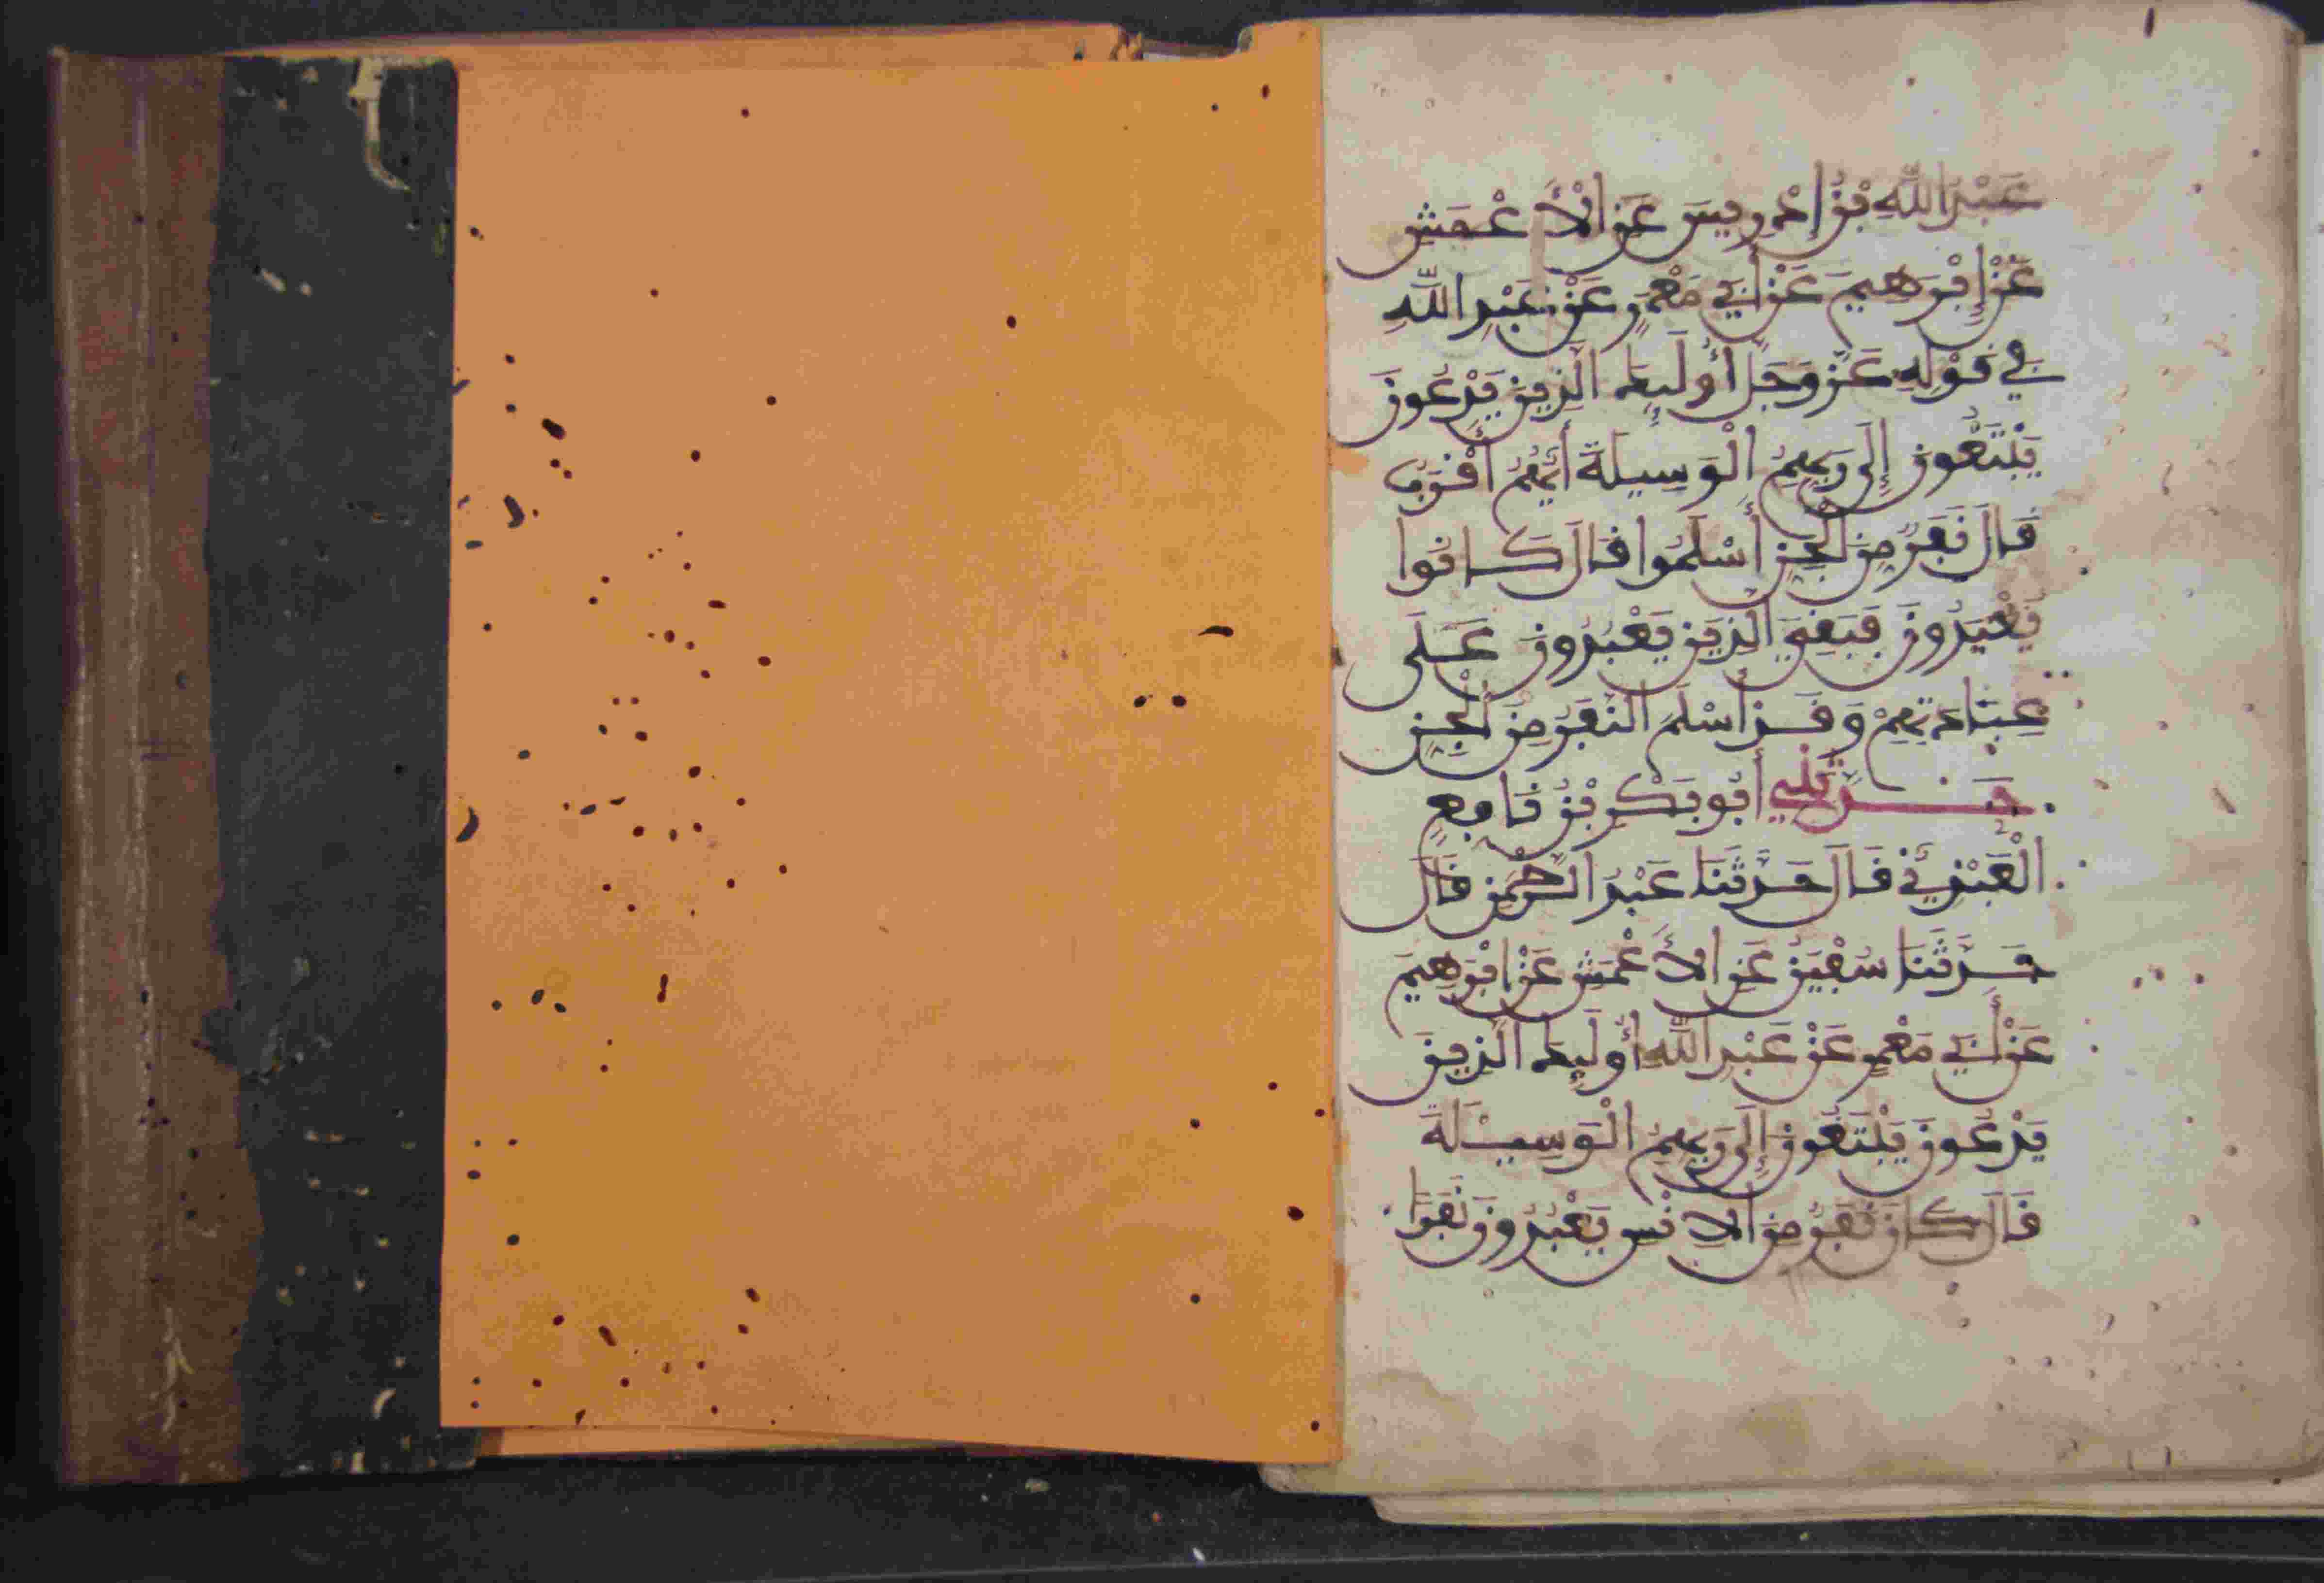 ١
عَبْدُ اللَّهِ بْنُ إِدْرِيسَ عَنِ الْأَعْمَشِ
عَنْ إِبْرَهِيمَ عَنْ أَبِي مَعْمَرٍ عَنْ عَبْدِ اللَّهِ
فِي قَوْلِهِ عَزَّ وَجَلَّ أُولَئِكَ الَّذِينَ يَدْعُونَ
يَبْتَغُونَ إِلَى رَبِّهِمُ الْوَسِيلَةَ أَيُّهُمْ أَقْرَبُ
قَالَ نَفَرٌ مِنَ الْجِنِّ أَسْلَمُوا قَالَ كَانُوا
يُعْبَدُونَ فَبَقِيَ الَّذِينَ يَعْبُدُونَ عَلَى
عِبَادَتِهِمْ وَقَدْ أَسْلَمَ النَّفَرُ مِنَ الْجِنِّ
حَدَّثَنِي أَبُو بَكْرِ بْنُ نَافِعٍ
الْعَبْدِيُّ قَالَ حَدَّثَنَا عَبْدُ الرَّحْمَنِ قَالَ
حَدَّثَنَا سُفْيَنُ عَنِ الْأَعْمَشِ عَنْ إِبْرَهِيمَ
عَنْ أَبِي مَعْمَرٍ عَنْ عَبْدِ اللَّهِ أُولَئِكَ الَّذِينَ
يَدْعُونَ يَبْتَغُونَ إِلَى رَبِّهِمُ الْوَسِيلَةَ
قَالَ كَانَ نَفَرٌ مِنَ الْإِنْسِ يَعْبُدُونَ نَفَرًا